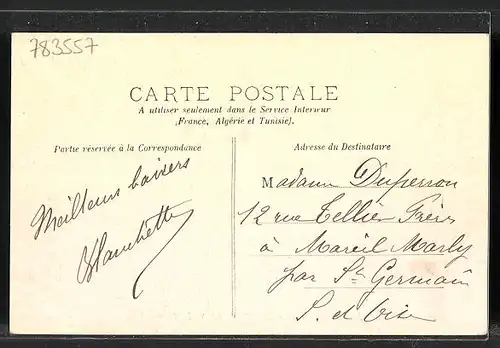 783557
CARTE POSTALE
A utiliser seulement dans le Service Intérieur
(France, Algérie et Tunisie).
Partie réservée à la Correspondance
Adresse du Destinataire
Meilleurs baisers
Blanchette
Madame Duperron
12 rue Tellier Frères
à Mareil Marly
par St Germain
S. et Oise